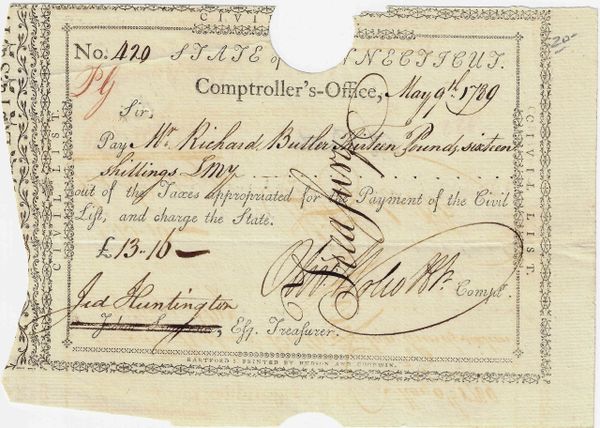 CIVIL
No. 429 STATE of NNECTICUT.
Comptroller's-Office, May 9th. 1789
Sir,
Pay Mr. Richard Butler Thirteen Pounds sixteen
shillings LMy
out of the Taxes appropriated for the Payment of the Civil
List, and charge the State.
£ 13-16
Treasury
Oliv. Wolcott Jr. Compt.
Jed Huntington
John Esq. Treasurer.
HARTFORD: PRINTED BY HUDSON AND GOODWIN.
CIVIL LIST.
CIVIL LIST.
20-